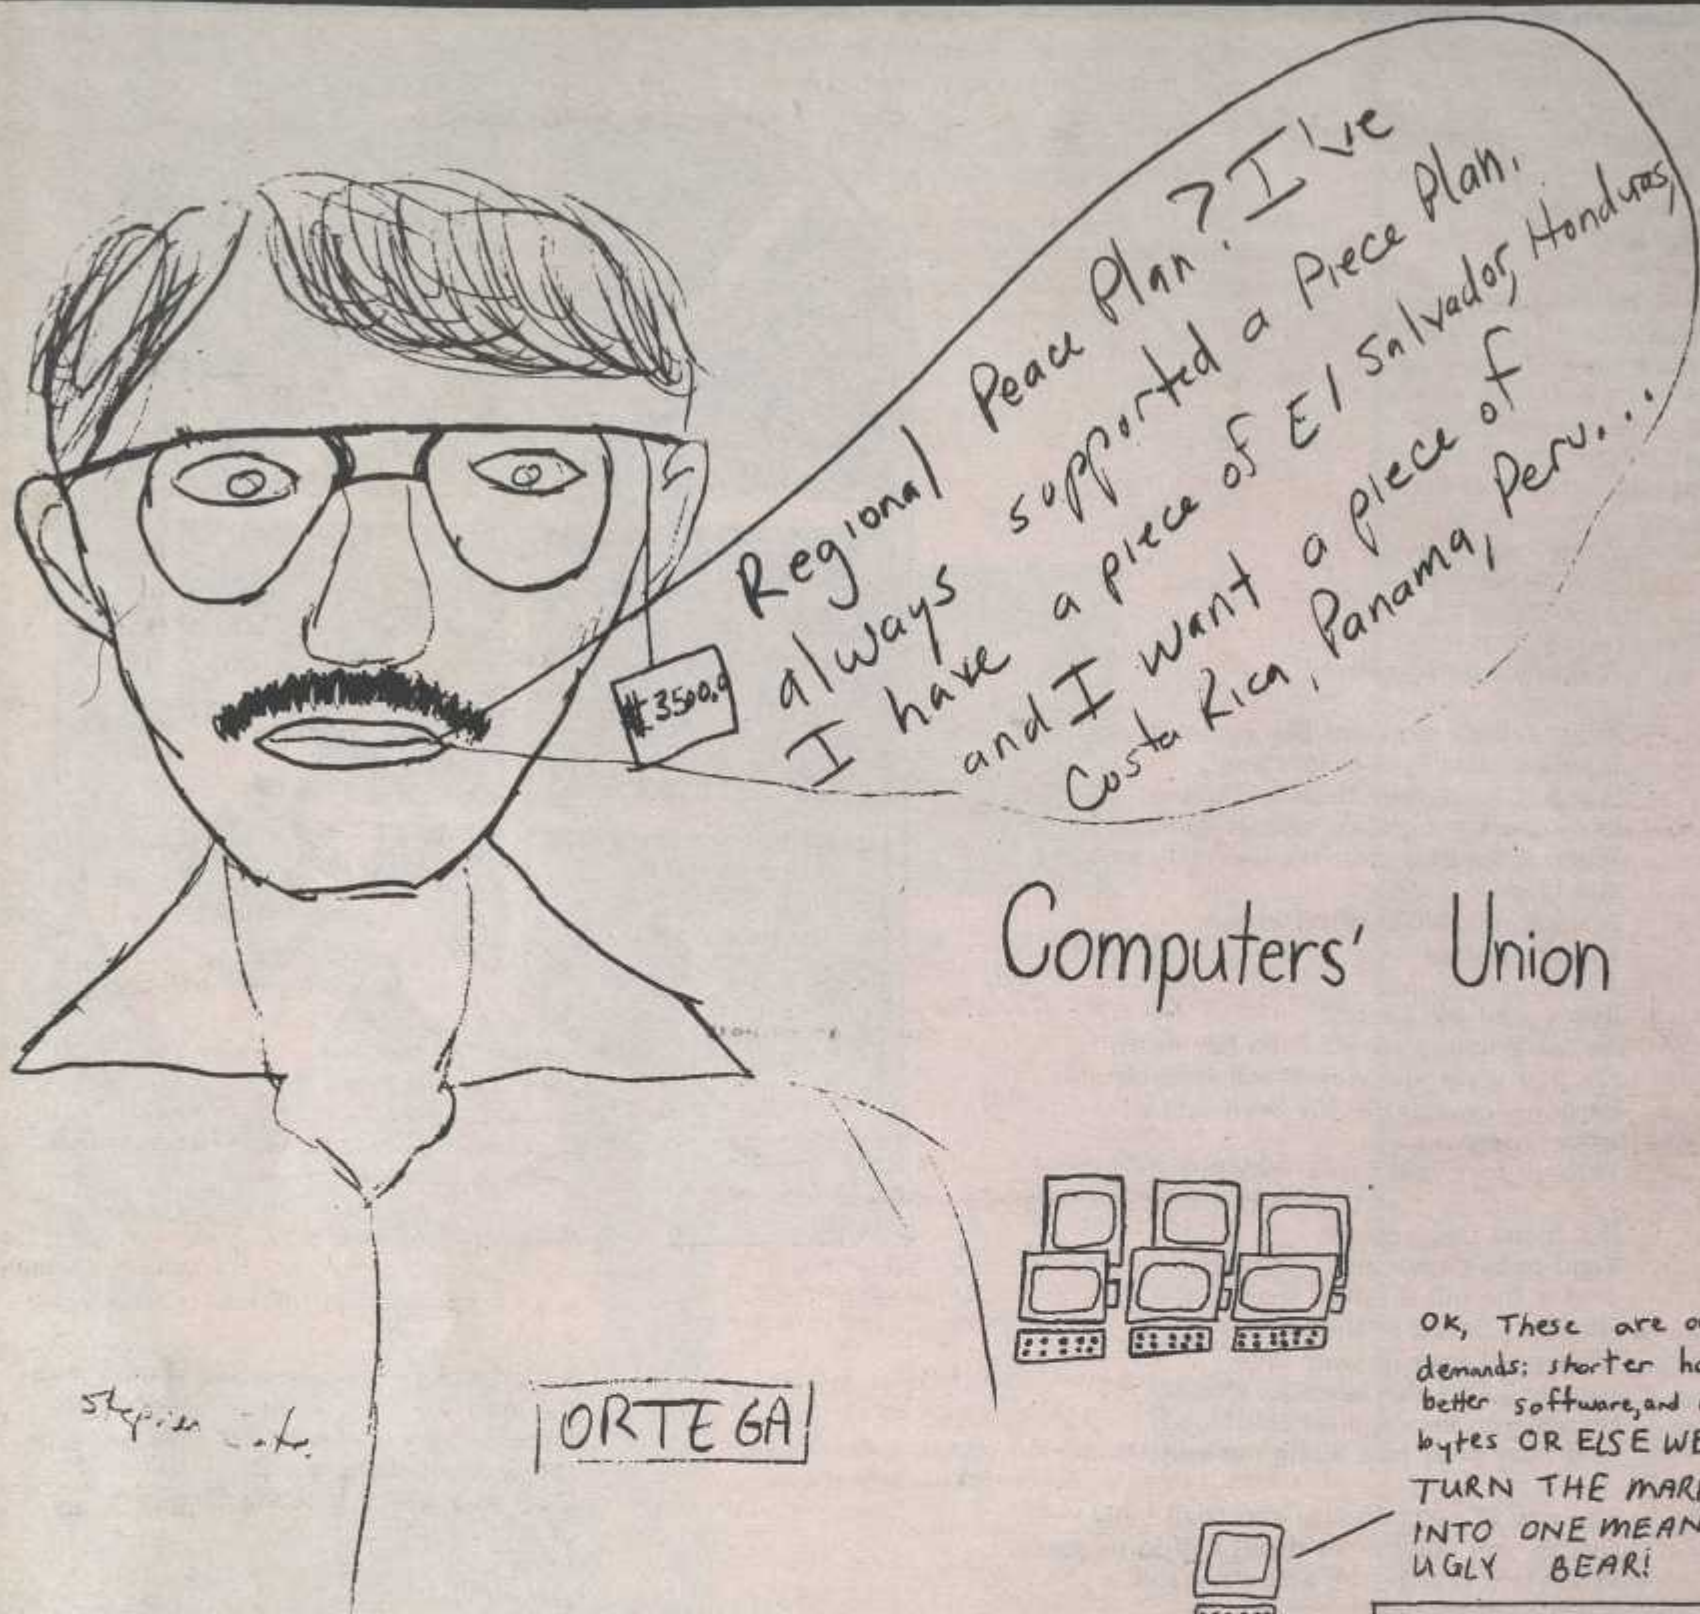 Regional Peace Plan? I've
always supported a Piece Plan.
I have a piece of El Salvador, Honduras,
and I want a piece of
Costa Rica, Panama, Peru...
ORTEGA
Computers' Union
OK, These are
demands: shorter
better software, and
bytes OR ELSE WE
TURN THE
INTO ONE MEAN
UGLY BEAR!